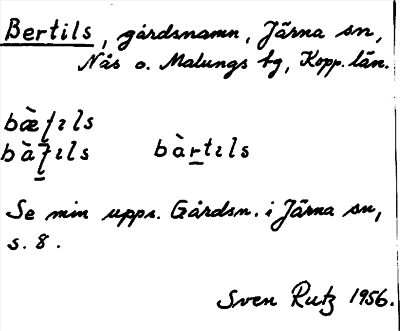 Bertils, gårdsnamn, Järna sn,
Nås o. Malungs tg, Kopp. län.
bæ̀ʈıls
bàʈıls bàrtıls
Se min upps. Gårdsn. i Järna sn,
s. 8.
Sven Rutz 1956.